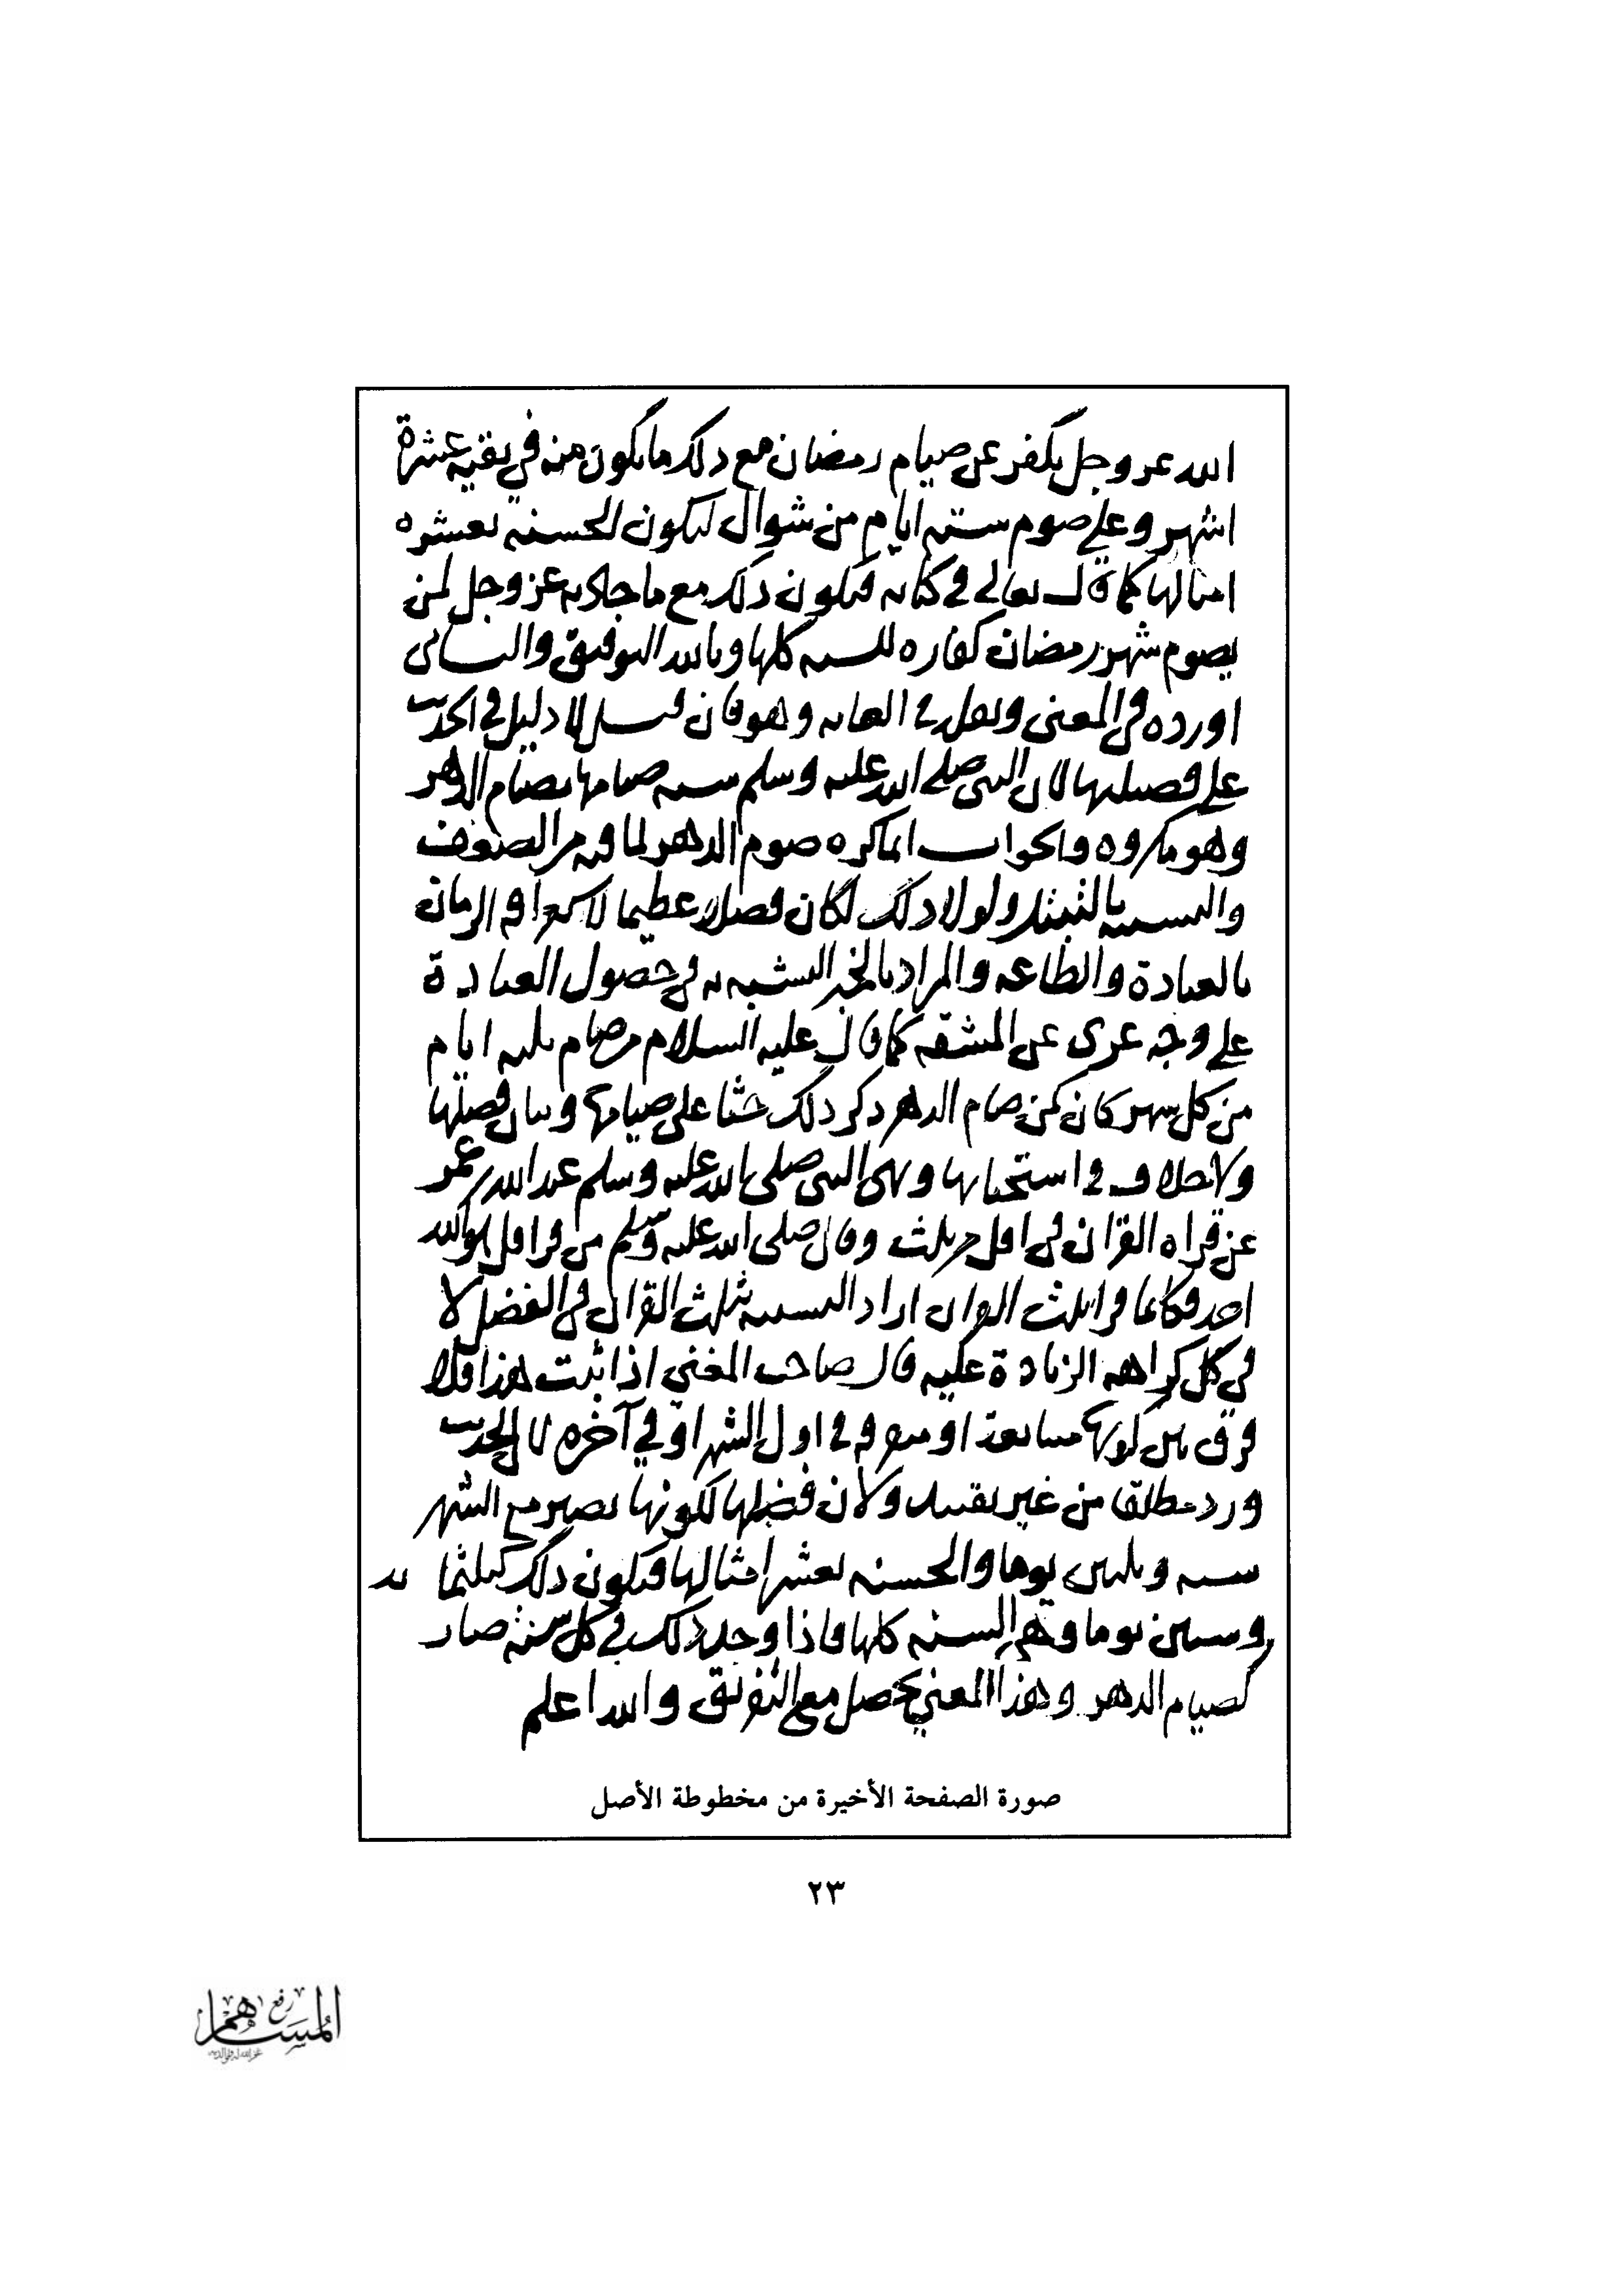 الله عز وجل يكفر عن صيام رمضان مع ذلك ما يكون منه في بقية عشرة
اشهر وعلى صوم ستة ايام من شوال ليكون الحسنة بعشرة
امثالها كما قال تعالى في كتابه فيكون ذلك مع ما جاد به عز وجل لمن
يصوم شهر رمضان كفاره للسنه كلها وبالله التوفيق والثاني
اورده في المعنى ونقل في الغايه وهو فان قيل لا دليل في الحديث
على فضيلتها لان النبي صلى الله عليه وسلم شبه صيامها بصيام الدهر
وهو مكروه والجواب انما كره صوم الدهر لما فيه من الضعف
والتشبيه بالتبتل ولولا ذلك لكان فضلا عظيما لاستغراقه الزمان
بالعبادة والطاعه والمراد بالخبر التشبيه به في حصول العبادة
على وجه عري عن المشقه كما قال عليه السلام من صام ثلثه ايام
من كل شهر كان كمن صام الدهر ذكر ذلك حثا على صيامها وبيان فضلها
ولا خلاف في استحبابها ونهى النبي صلى الله عليه وسلم عبد الله بن عمر
عن قراه القران في اقل من ثلث وقال صلى الله عليه وسلم من قرا قل هو الله
احد فكانما قرا ثلث القران اراد التشبيه بثلث القران في الفضل لا
في كل كراهه الزيادة عليه قال صاحب المغني اذا ثبت هذا فلا
فرق بين كونها متتابعة او مفرقه في اول الشهر او في آخره لان الحديث
ورد مطلقا من غير تقييد ولان فضلها لكونها تصير مع الشهر
سته وثلثين يوما والحسنه بعشر امثالها فيكون ذلك كثلثمايه
وستين يوما وهي السنه كلها فاذا وجد ذلك في كل سنة صار
كصيام الدهر وهذا المعني يحصل مع التفريق والله اعلم
صورة الصفحة الأخيرة من مخطوطة الأصل
٢٣
رفع
المساهم